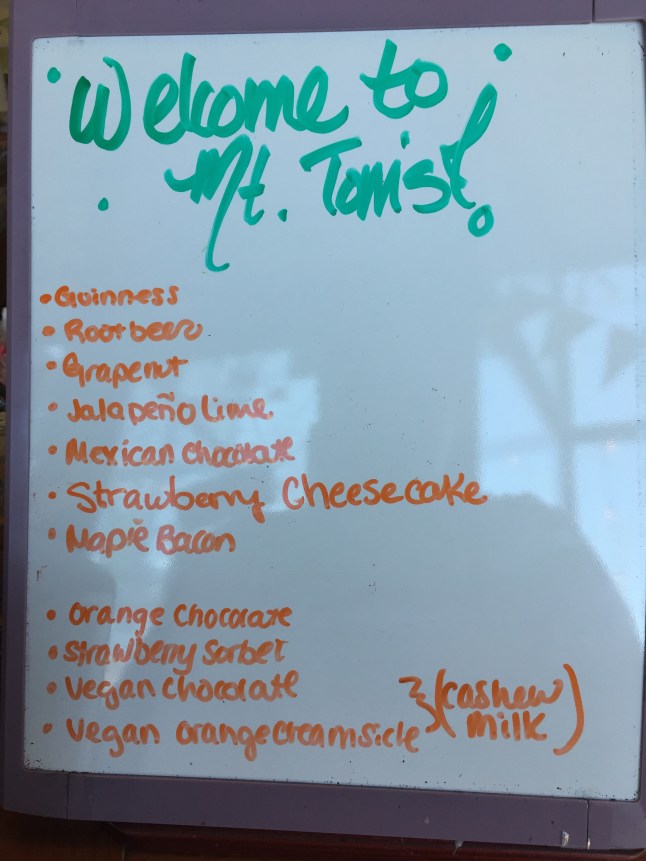 Welcome to
Mt. Tom's!
• Guinness
• Rootbeer
• Grapenut
• Jalapeño Lime
• Mexican Chocolate
• Strawberry Cheesecake
• Maple Bacon
• Orange Chocolate
• Strawberry Sorbet
• Vegan Chocolate
• Vegan Orange Creamsicle } (cashew milk)